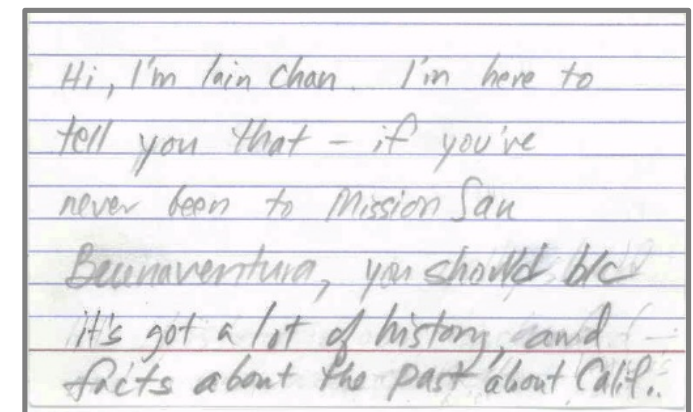 Hi, I'm Iain Chan. I'm here to
tell you that – if you've
never been to Mission San
Buenaventura, you should b/c
it's got a lot of history, and
facts about the past about Calif.